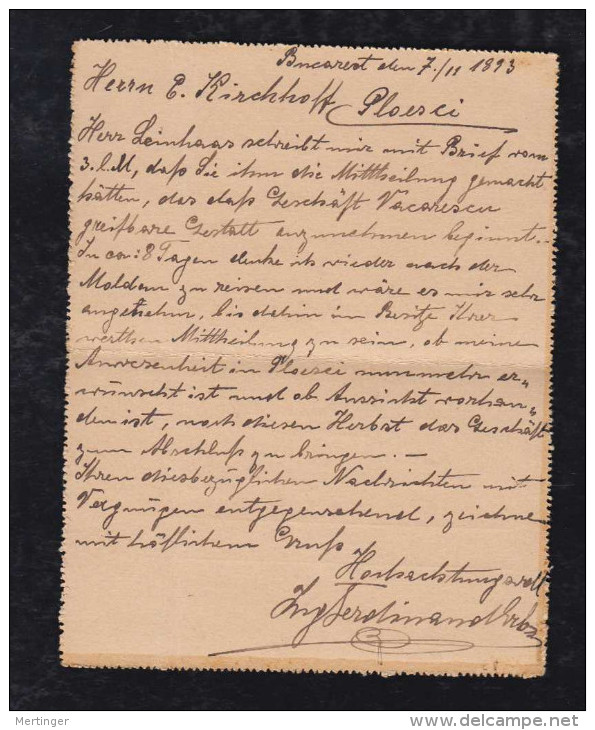 Bucarest den 7./11 1893
Herrn E. Kirchhoff
Ploesci
Herr Leinhaas schreibt mir mit Brief vom
3. l. M, daß Sie ihm die Mittheilung gemacht
hätten, das daß Geschäft Vacarescu
greifbare Gestalt anzunehmen beginnt. –
In ca: 8 Tagen denke ich wieder nach der
Moldau zu reisen und wäre es mir sehr
angenehm, bis dahin im Besitze Ihrer
werthen Mittheilung zu sein, ob meine
Anwesenheit in Ploesci nunmehr er„
wünscht ist und ob Aussicht vorhan„
den ist, noch diesen Herbst das Geschäft
zum Abschluß zu bringen. –
Ihren diesbezüglichen Nachrichten mit
Vergnügen entgegensehend, zeichne
mit höflichem Gruß
Hochachtungsvoll
Ing Ferdinand
Mertinger
www.delcampe.net